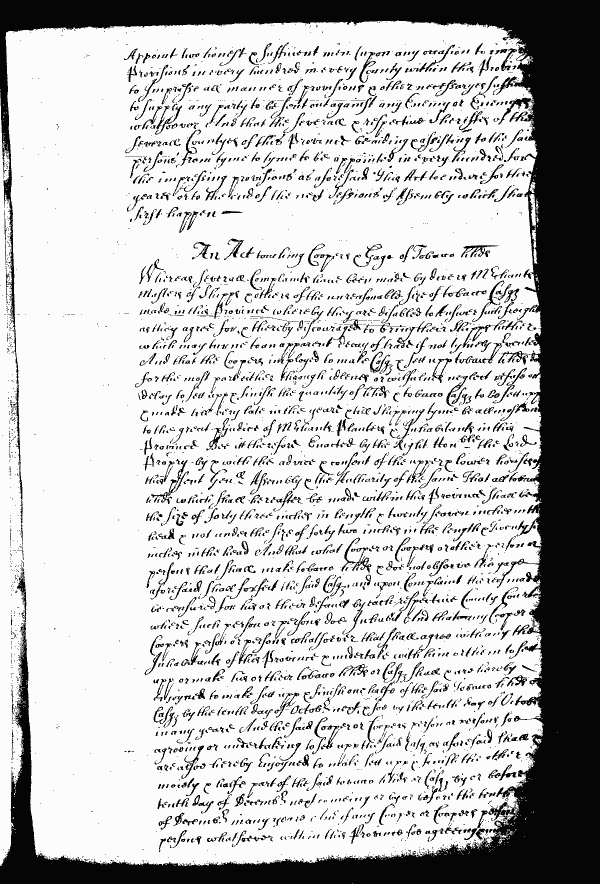 Appoint two honest & sufficient men (upon any occasion to impresse
Provisions in every hundred in every County within this Province
to Impresse all manner of provisions & other necessaryes
to supply any party to be sent out against any Enemy or Enemyes
whatsoever And that the severall & respective Sheriffes of the
severall Countyes of this Province be aiding & assisting to the said
persons from tyme to tyme to be appointed in every hundred for
the impressing provisions as aforesaid This Act to endure for three
yeares or to the end of the next Sessions of Assembly which shall
first happen —
An Act touching Coopers & Gage of Tobacco hhds
Whereas severall Complaints have been made by divers Merchants
Masters of Shipps & others of the unreasonable size of tobacco Casqs
made in this Province whereby they are disabled to Answer such freight
as they agree for, & thereby discouraged to bring their Shipps hither
which may turne to an apparent decay of trade if not tymely prevented
And that the Coopers imployed to make Casqs & sett upp tobacco hhds
for the most part either through idlenes or wilfulnes neglect refuse or
delay to sett upp & finish the quantity of hhds & tobacco Casqs to be sett upp
& made till very late in the yeare & till Shipping tyme be allmost
to the great pjudice of Mrchants Planters & Inhabitants in this
Province Bee it therefore Enacted by the Right Honble the Lord
Propry by & with the advice & consent of the upper & lower howses of
this psent Genll Assembly & the Authority of the same That all tobacco
hhds which shall hereafter be made within this Province shall be
the size of forty three inches in length & twenty seaven inches in the
head & not under the size of forty two inches in the length & Twenty
inches in the head And that what Cooper or Coopers or other person or
persons that shall make tobacco hhds & doe not observe the gage
aforesaid shall forfeit the said Casqs and upon Complaint thereof made
be censured for his or their default by each respective County Court
where such person or persons doe Inhabit And that any Cooper or
Coopers person or persons whatsoever that shall agree with any the
Inhabitants of this Province & undertake with him or them to sett
upp or make his or their tobacco hhds or Casqs shall & are hereby
enjoyned to make sett upp & finish one halfe of the said Tobacco hhds or
Casqs by the tenth day of Octobr next, & soe by the tenth day of Octobr
in any yeare And the said Cooper or Coopers person or persons soe
agreeing or undertaking to sett upp the said Casqs as aforesaid shall &
are alsoe hereby Enjoyned to make sett upp & finish the other
moiety & halfe part of the said tobacco hhds or Casqs by or before
tenth day of Decembr next comeing or by or before the tenth
of Decembr in any yeare And if any Cooper or Coopers person
persons whatsoever within this Province soe agreeing